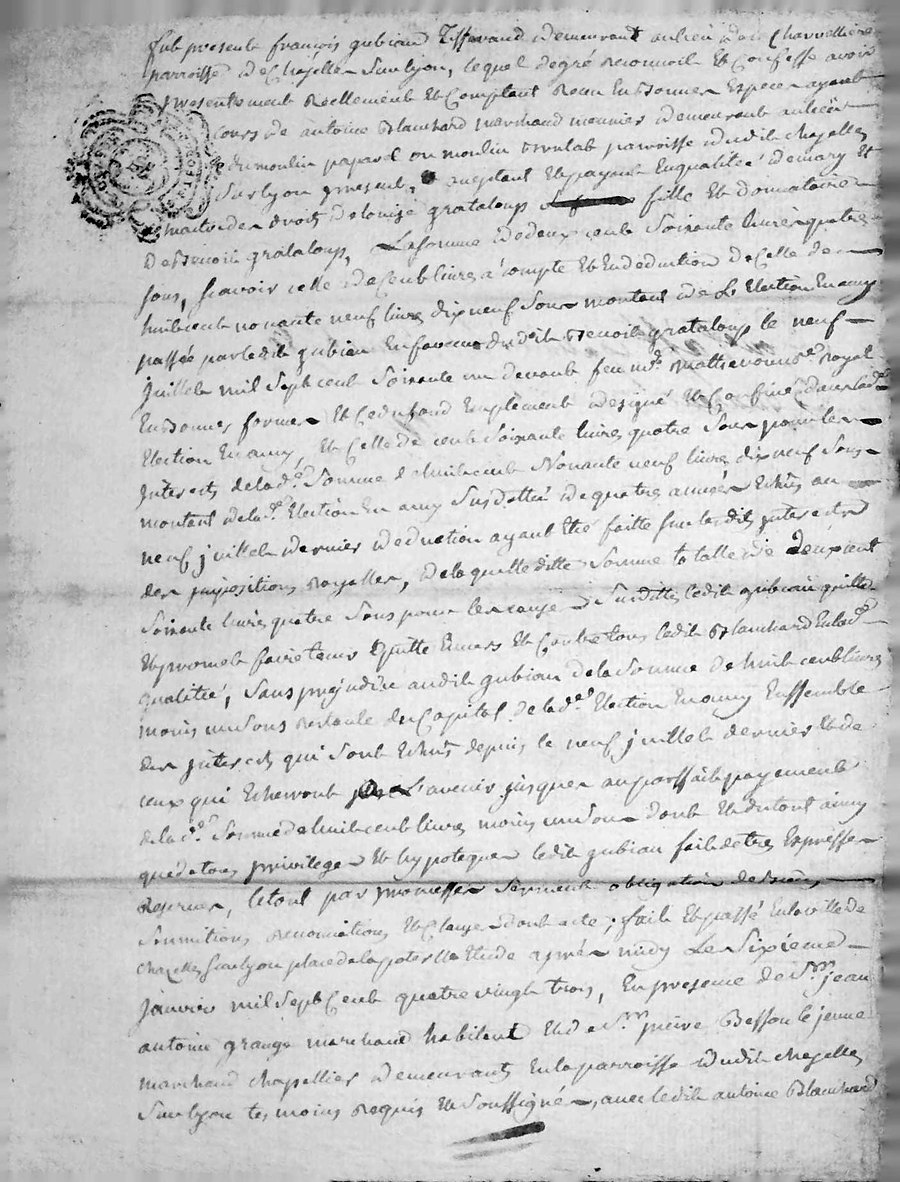 fut present françois gubian Tisserand demeurant au lieu de la Charvollière
parroisse de Chazelles Sur lyon, lequel de gré reconnoit Et Confesse avoir
presentement reellement Et Comptant reçu En bonnes Especes ayant
cours de antoine Blanchard marchand meunier demeurant au lieu
du moulin payarel ou moulin parroisse dudit Chazelles
Sur lyon present, aceptant Et payant En qualité de mary Et
maitre des droits de louise grataloup fille Et donnataire
de Benoit grataloup, La Somme de deux cent Soixante livres quatre
Sous, Scavoir celle de Cent livres a compte Et En deduction de Celle de
huit cent nonante neuf livres dix neuf Sous montant de L' Election En amy
passée par ledit gubian En faveur dudit Benoit grataloup le neuf
juillet mil Sept cent Soixante un devant feu me. royal
En bonnes formes Et Ce du fond Emplement designé Et Confiné dans lade.
Election En amy, Et Celle de cent Soixante livres quatre Sous pour les
jnterests de lade. Somme de huit cent Nonante neuf livres dix neuf Sous
montant de lade. Election En amy Susdattée de quatre années Echues au
neuf juillet dernier deduction ayant Eté faitte Sur lesdits jnterests
des jmpositions royalles, de laquelle ditte Somme totalle de deux cent
Soixante livres quatre Sous pour les causes Susdittes ledit gubian quitte
Et promet faire tenir quitte Envers Et Contre tous ledit Blanchard En lade.
qualitée, Sans prejudice audit gubian de la Somme de huit cent livres
moins un Sous restante du Capital de lade. Election En amy Enssemble
des jnterests qui Sont Echus depuis le neuf juillet dernier Et de
ceux qui Echerront a l'avenir jusques au parffait payement
de lade. Somme de huit cent livres moins un Sou dont Et du tout ainsy
que de tous privileges Et hypoteques ledit gubian fait de tres Expresses
reserves, le tout par promesses Serment obligation de biens
Soumitions renonciations Et Clauses dont acte; fait Et passé En la ville de
chazelles Sur lyon place de la poterlle Etude après midy Le Sixieme
janvier mil Sept Cent quatre vingt trois, En presence de Sr. jean
antoine grange marchand habitant Et de Sr. pierre Besson le jeune
marchand chapellier demeurants En la parroisse dudit Chazelles
Sur lyon temoins requis Et Soussignés, avec ledit antoine Blanchard